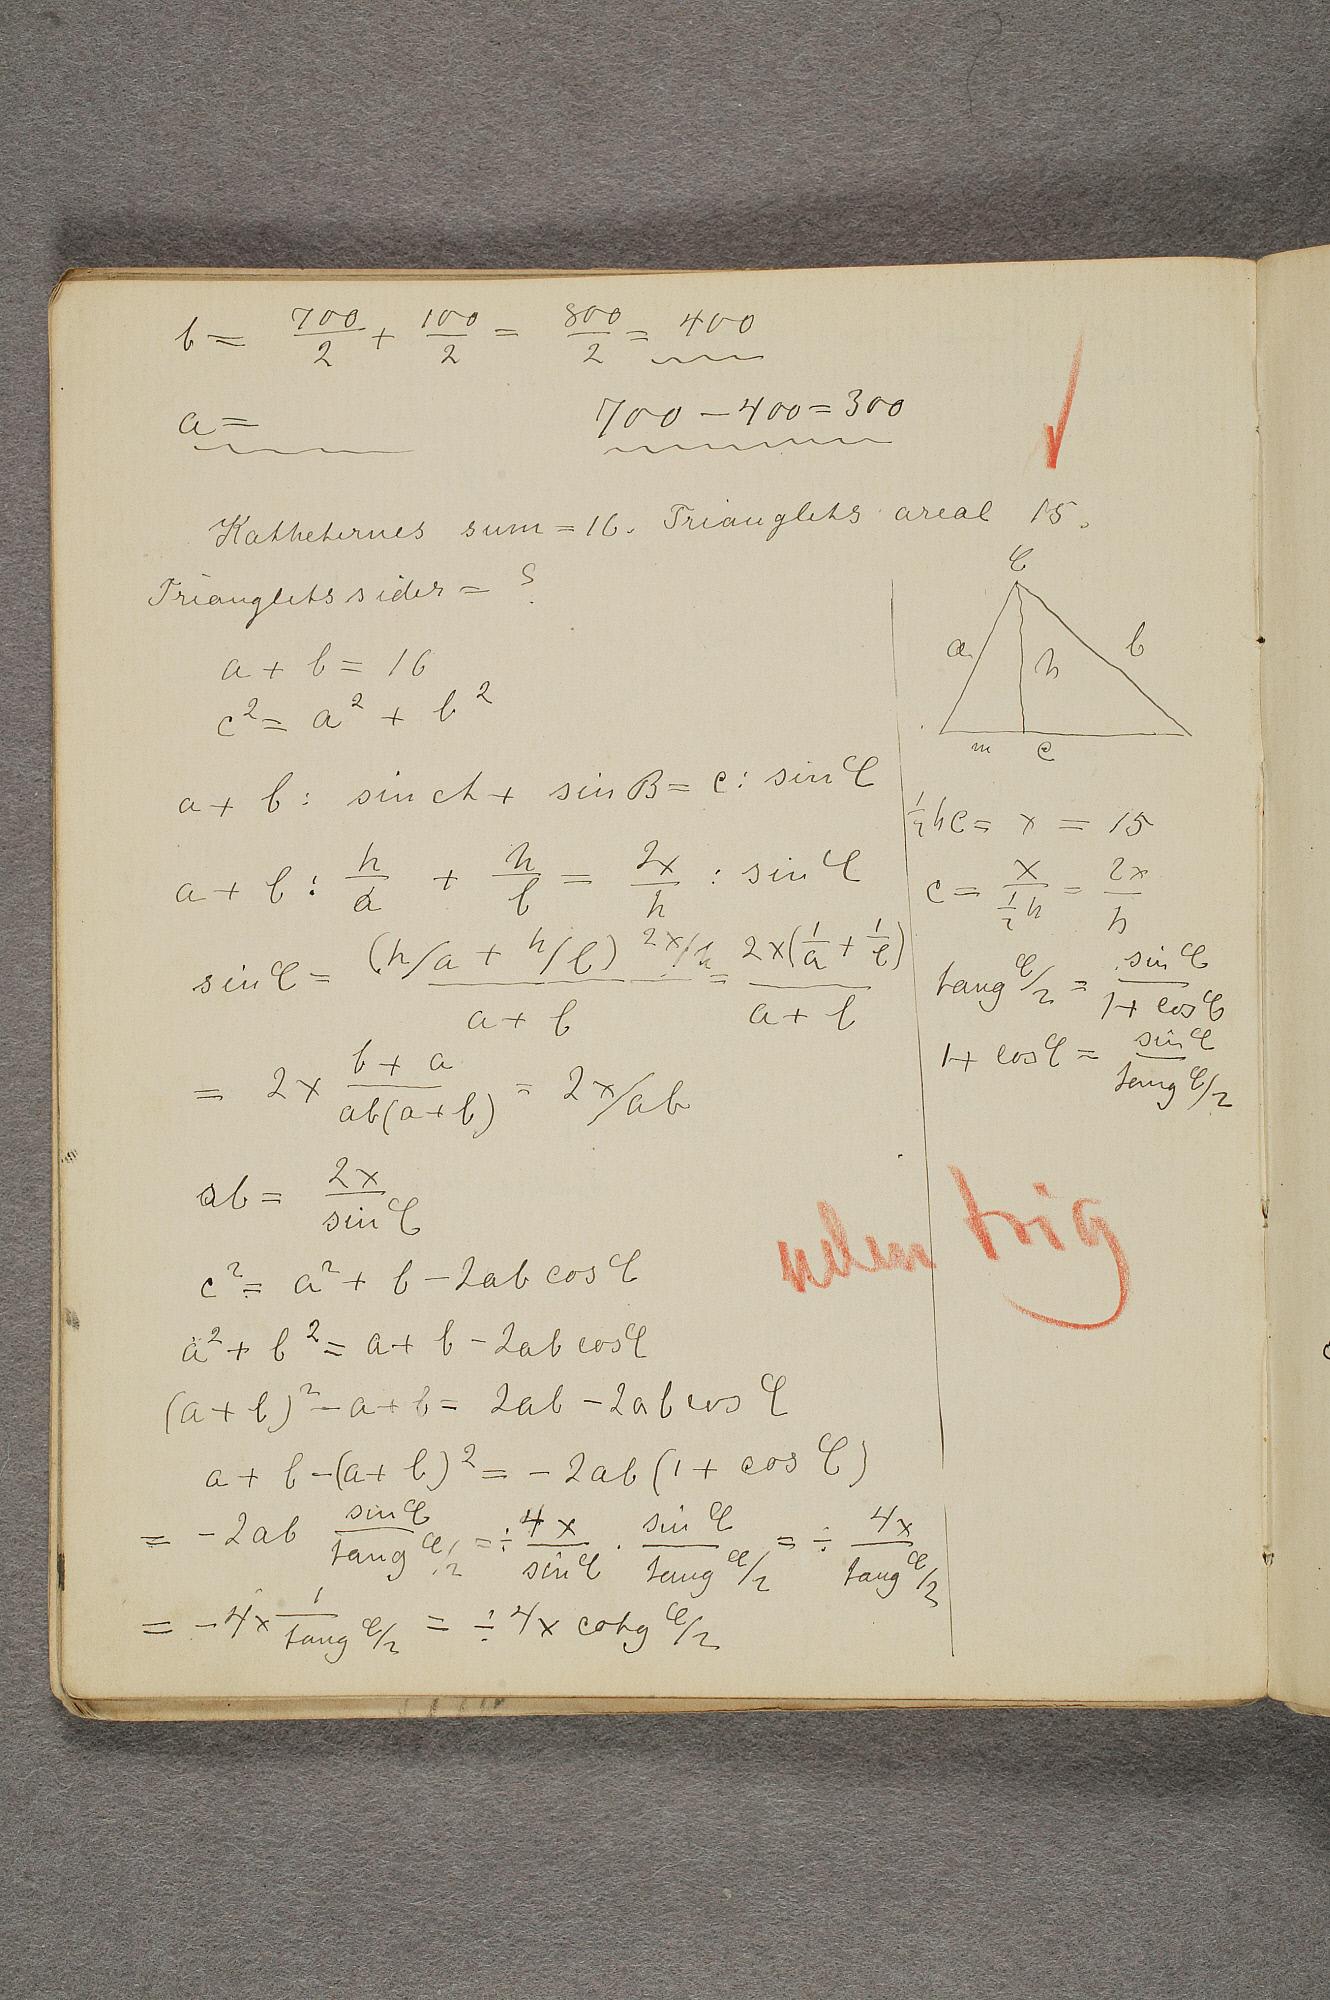 b = 700/2 + 100/2 = 800/2 = 400
a = 700 - 400 = 300
Katheternes sum = 16. Trianglets areal 15.
Trianglets sider = ?
a + b = 16
c² = a² + b²
a + b : sin A + sin B = c : sin C
a + b : h/a + h/b = 2x/h : sin C
sin C = (h/a + h/b) 2x/h / a + b = 2x(1/a + 1/b) / a + b
= 2x b + a / ab(a + b) = 2x/ab
ab = 2x / sin C
c² = a² + b - 2ab cos C
a² + b² = a + b - 2ab cos C
(a + b)² - a + b = 2ab - 2ab cos C
a + b - (a + b)² = - 2ab (1 + cos C)
= - 2ab sin C / tang C/2 = ÷ 4x / sin C · sin C / tang C/2 = ÷ 4x / tang C/2
= - 4x 1 / tang C/2 = ÷ 4x cotg C/2
C
a h b
m c
½ h c = x = 15
c = x / ½ h = 2x / h
tang C/2 = sin C / 1 + cos C
1 + cos C = sin C / tang C/2
uden trig